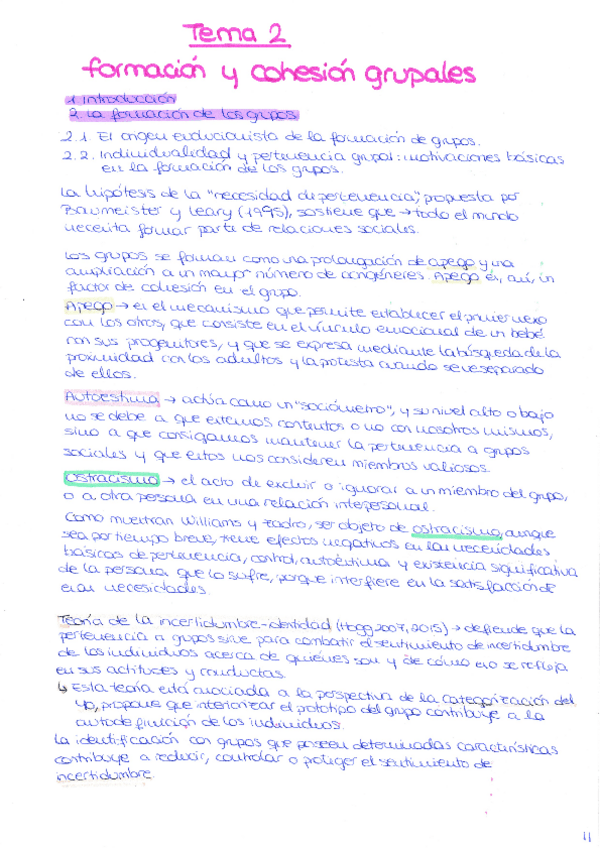 Tema 2
formación y cohesión grupales
1. Introducción
2. La formación de los grupos
2.1. El origen evolucionista de la formación de grupos.
2.2. Individualidad y pertenencia grupal: motivaciones básicas
en la formación de los grupos.
La hipótesis de la "necesidad de pertenencia", propuesta por
Baumeister y Leary (1995), sostiene que → todo el mundo
necesita formar parte de relaciones sociales.
Los grupos se forman como una prolongación de apego y una
ampliación a un mayor número de congéneres. Apego es, así, un
factor de cohesión en el grupo.
Apego → es el mecanismo que permite establecer el primer nexo
con los otros, que consiste en el vínculo emocional de un bebé
con sus progenitores, y que se expresa mediante la búsqueda de la
proximidad con los adultos y la protesta cuando se ve separado
de ellos.
Autoestima → actúa como un "sociómetro", y su nivel alto o bajo
no se debe a que estemos contentos o no con nosotros mismos,
sino a que consigamos mantener la pertenencia a grupos
sociales y que estos nos consideren miembros valiosos.
Ostracismo → el acto de excluir o ignorar a un miembro del grupo,
o a otra persona en una relación interpersonal.
Como muestran Williams y Zadro, ser objeto de ostracismo, aunque
sea por tiempo breve, tiene efectos negativos en las necesidades
básicas de pertenencia, control, autoestima y existencia significativa
de la persona que lo sufre, porque interfiere en la satisfacción de
esas necesidades.
Teoría de la incertidumbre-identidad (Hogg 2007, 2015) → defiende que la
pertenencia a grupos sirve para combatir el sentimiento de incertidumbre
de los individuos acerca de quiénes son y de cómo eso se refleja
en sus actitudes y conductas.
↳ Esta teoría está asociada a la perspectiva de la categorización del
yo, propone que interiorizar el prototipo del grupo contribuye a la
autodefinición de los individuos.
La identificación con grupos que poseen determinadas características
contribuye a reducir, controlar o proteger el sentimiento de
incertidumbre.
11